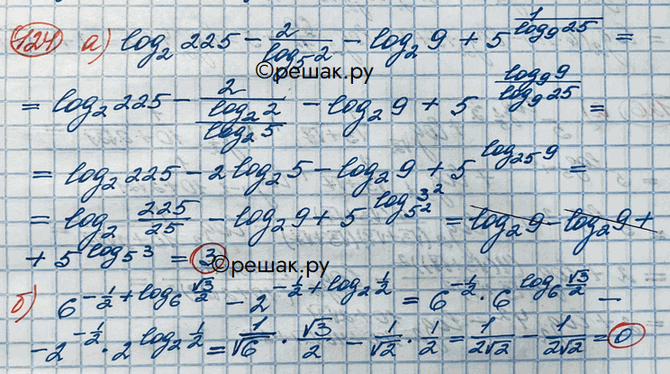 124 а) log₂ 225 − 2/(log₅ 2) − log₂ 9 + 5^(1/(log₉ 25)) =
©решак.ру
= log₂ 225 − 2/((log₂ 2)/(log₂ 5)) − log₂ 9 + 5^((log₉ 9)/(log₉ 25)) =
= log₂ 225 − 2 log₂ 5 − log₂ 9 + 5^(log₂₅ 9) =
= log₂ 225/25 − log₂ 9 + 5^(log_(5²) 3²) = log₂ 9 − log₂ 9 +
+ 5^(log₅ 3) = 3
©решак.ру
б) 6^(−1/2 + log₆ √3/2) − 2^(−1/2 + log₂ 1/2) = 6^(−1/2) · 6^(log₆ √3/2) −
− 2^(−1/2) · 2^(log₂ 1/2) = 1/√6 · √3/2 − 1/√2 · 1/2 = 1/(2√2) − 1/(2√2) = 0